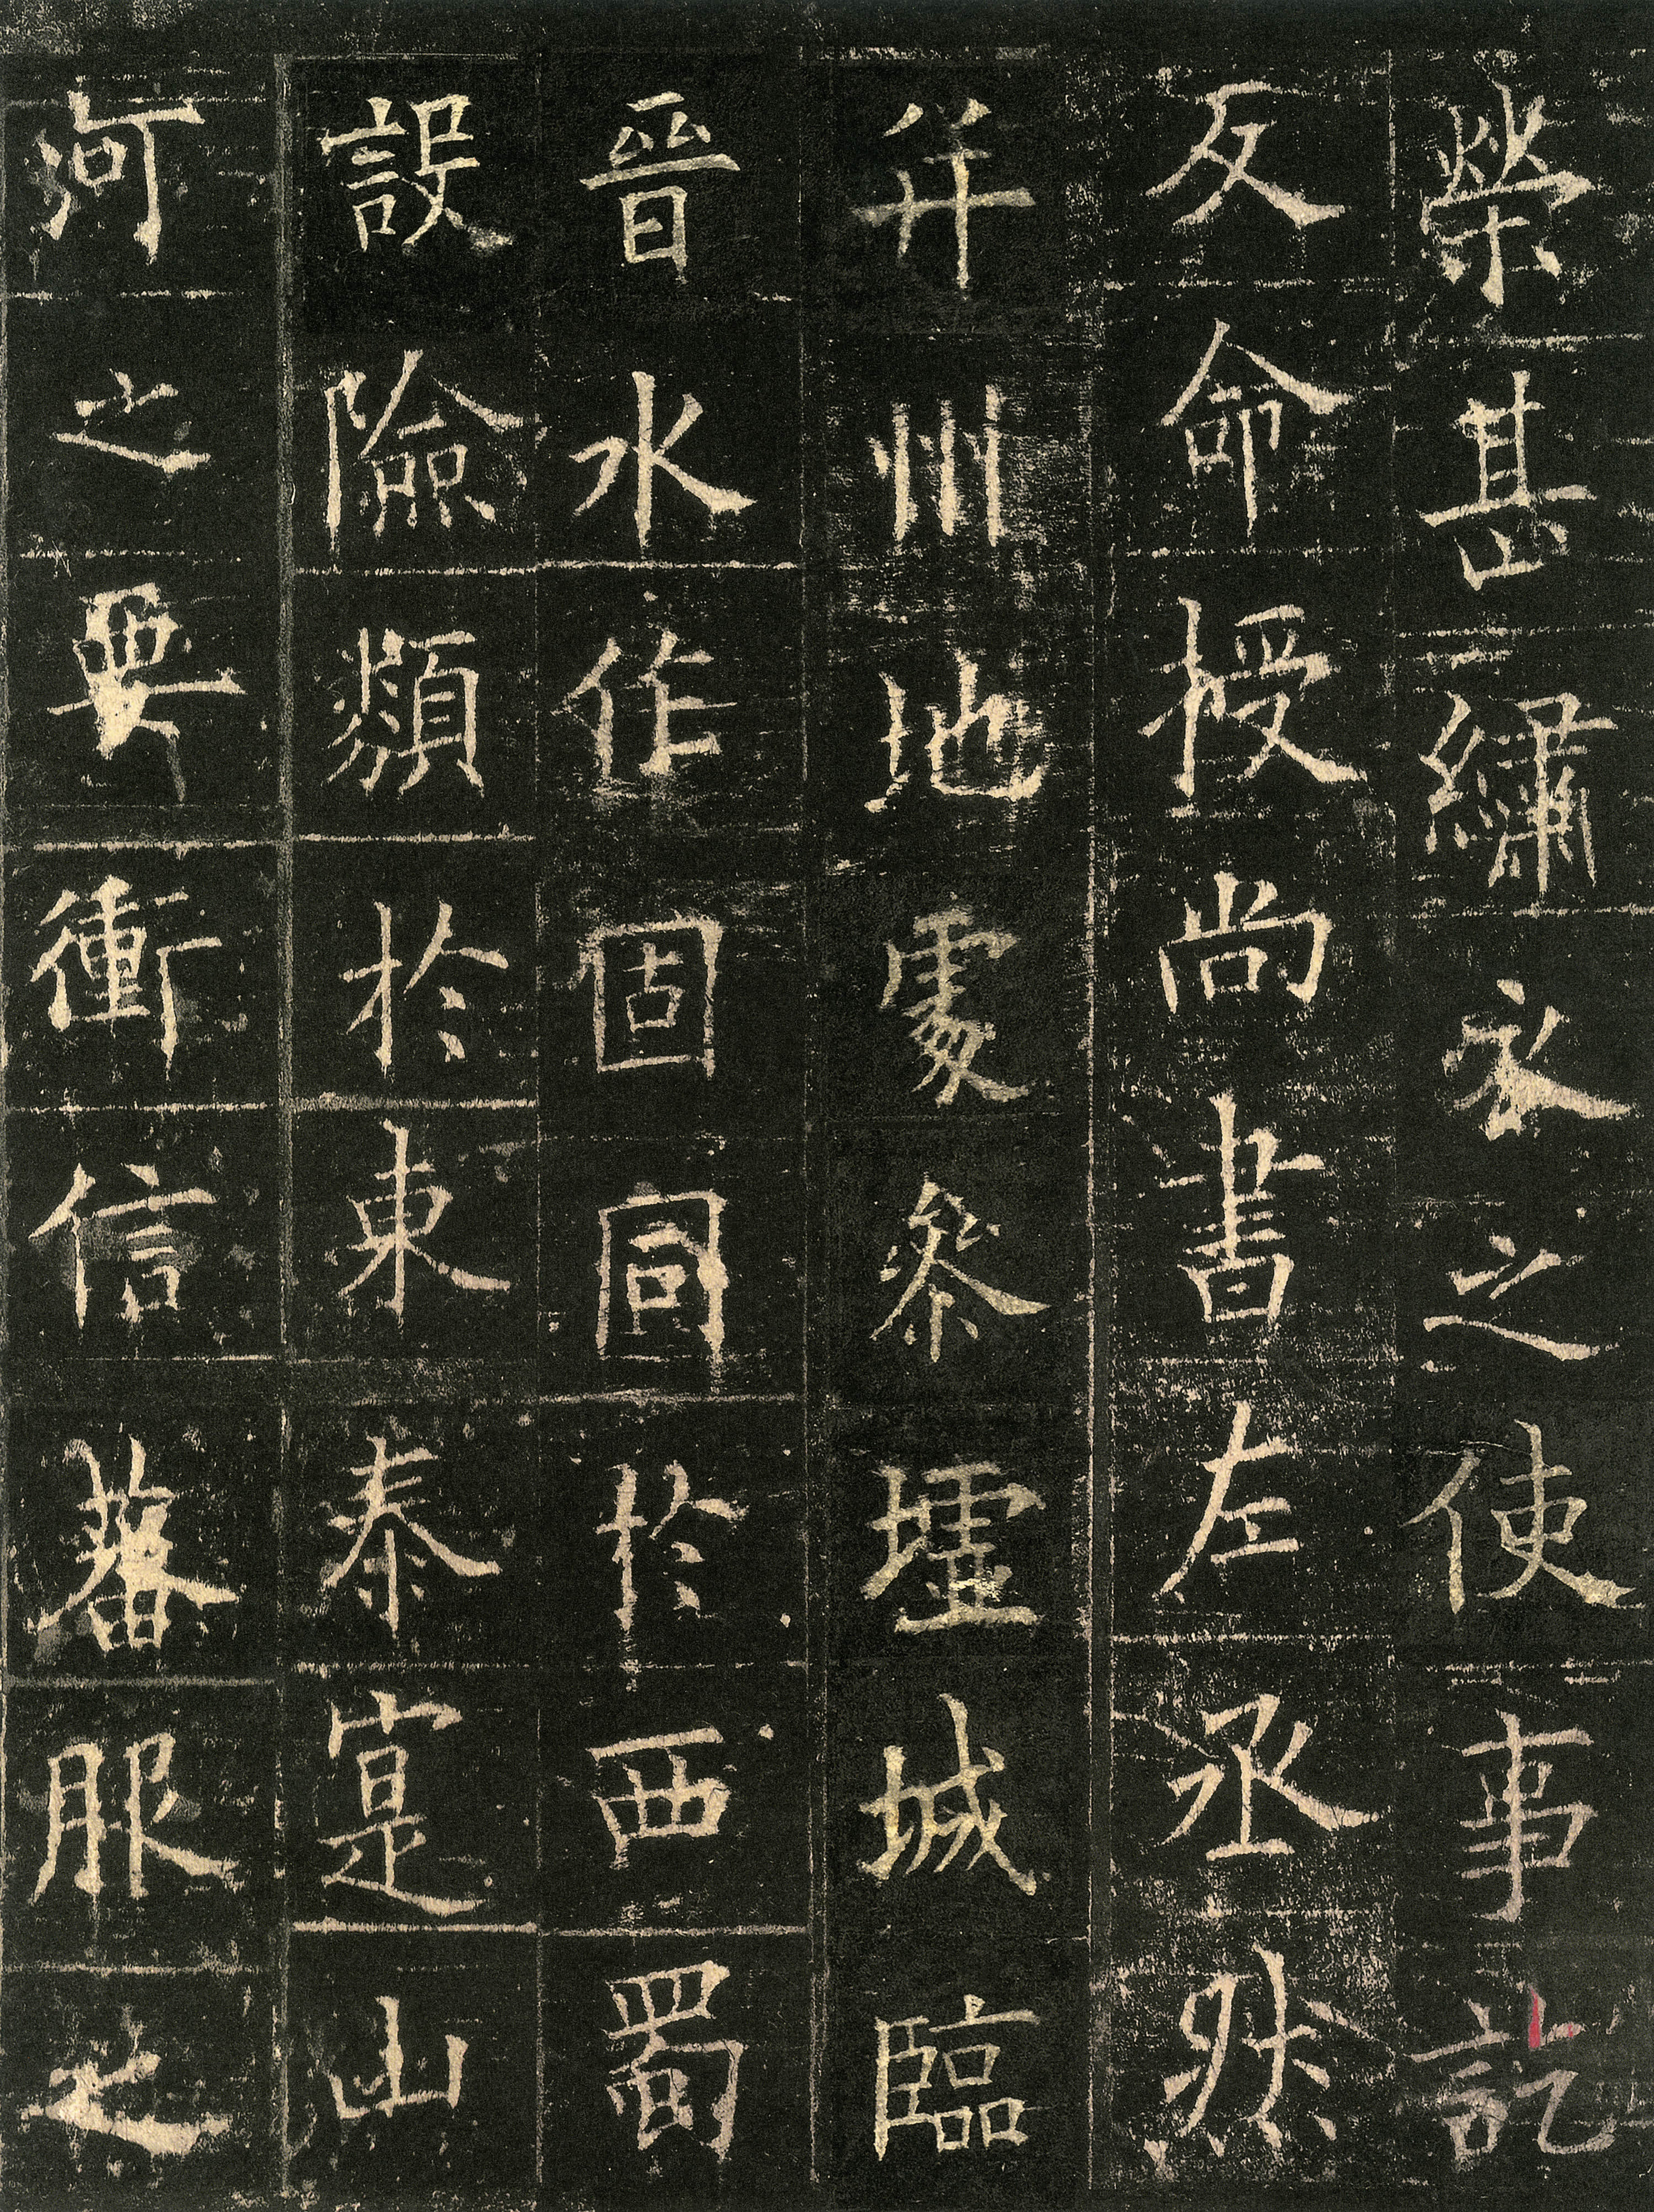 榮甚繡衣之使事訖
反命授尚書左丞然
并州地處參墟城臨
晉水作固同於西蜀
設險類於東泰寔山
河之要衝信蕃服之